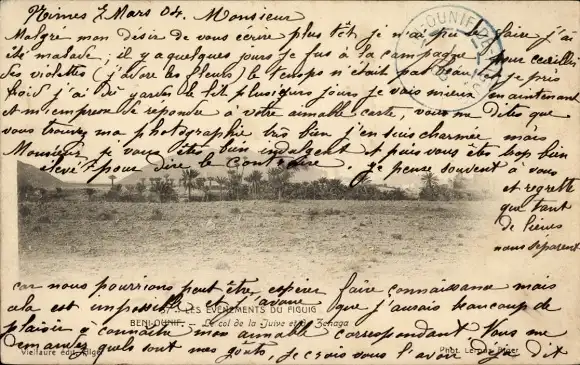 Nimes 7 Mars 04. Monsieur
Malgre mon desir de vous ecrire plus tôt, je n'ai pu le faire j'ai
été malade; il y a quelques jours je fus à la campagne pour cueillir
des violettes (j'adore les fleurs) le temps n'était pas beau et je pris
froid j'ai dû garder le lit plusieurs jours je vais mieux maintenant
et m'empresse de repondre à votre aimable carte, vous me dites que
vous trouvez ma photographie très bien j'en suis charmée mais
Monsieur je vous être bien indulgent et puis vous êtes trop bien
élevé pour dire le contraire
je pense souvent à vous
et regrette
que tant
de lieues
nous séparent
car nous pourrions peut être espérer faire connaissance mais
cela est impossible et j'avoue que j'aurais beaucoup de
plaisir à connaître mon aimable correspondant Vous me
demandez quels sont mes goûts, je crois vous l'avoir déjà dit
BENI-OUNIF
LES ÉVÉNEMENTS DU FIGUIG
BENI-OUNIF. — Le col de la Juive et la Zenaga
Vieillaure édit. Alger
Phot. Alger